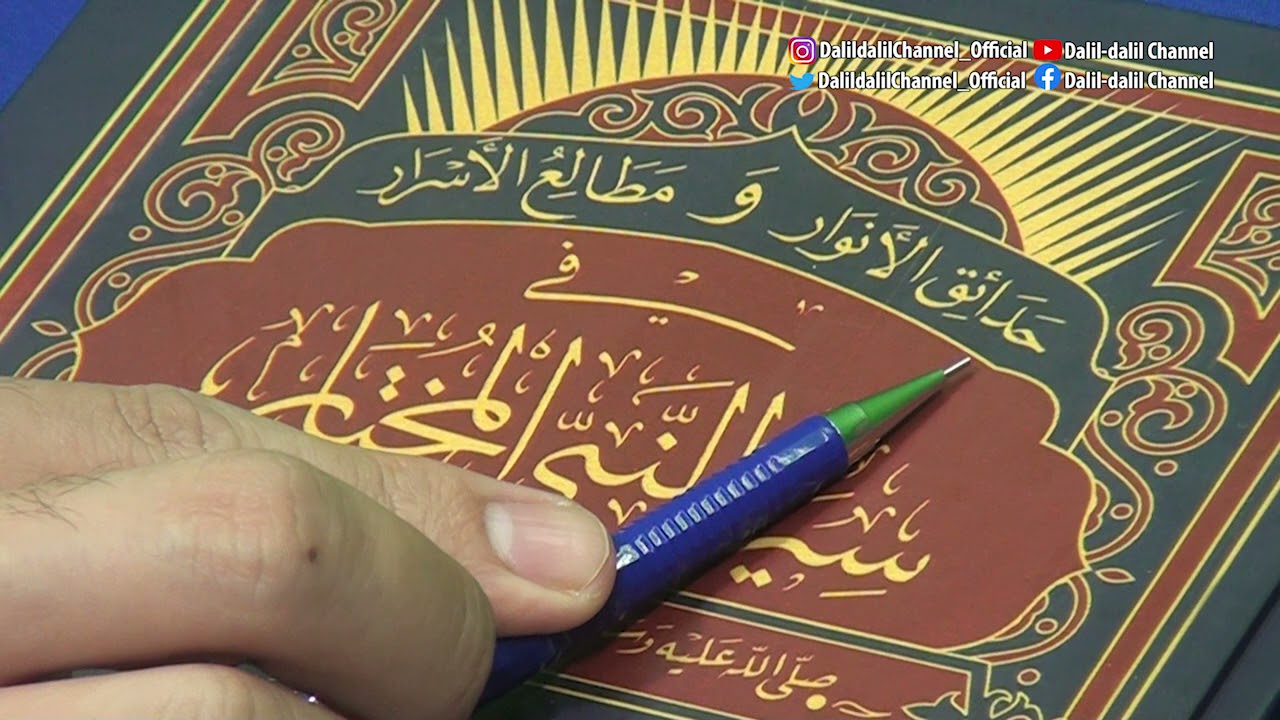 DalildalilChannel_Official Dalil-dalil Channel
DalildalilChannel_Official Dalil-dalil Channel
حَدَائِقِ الأَنْوَار وَ مَطَالِعُ الأَسْرَار
في
النَّبِيِّ المُخْتَار
صَلَّى اللّه عَلَيْه